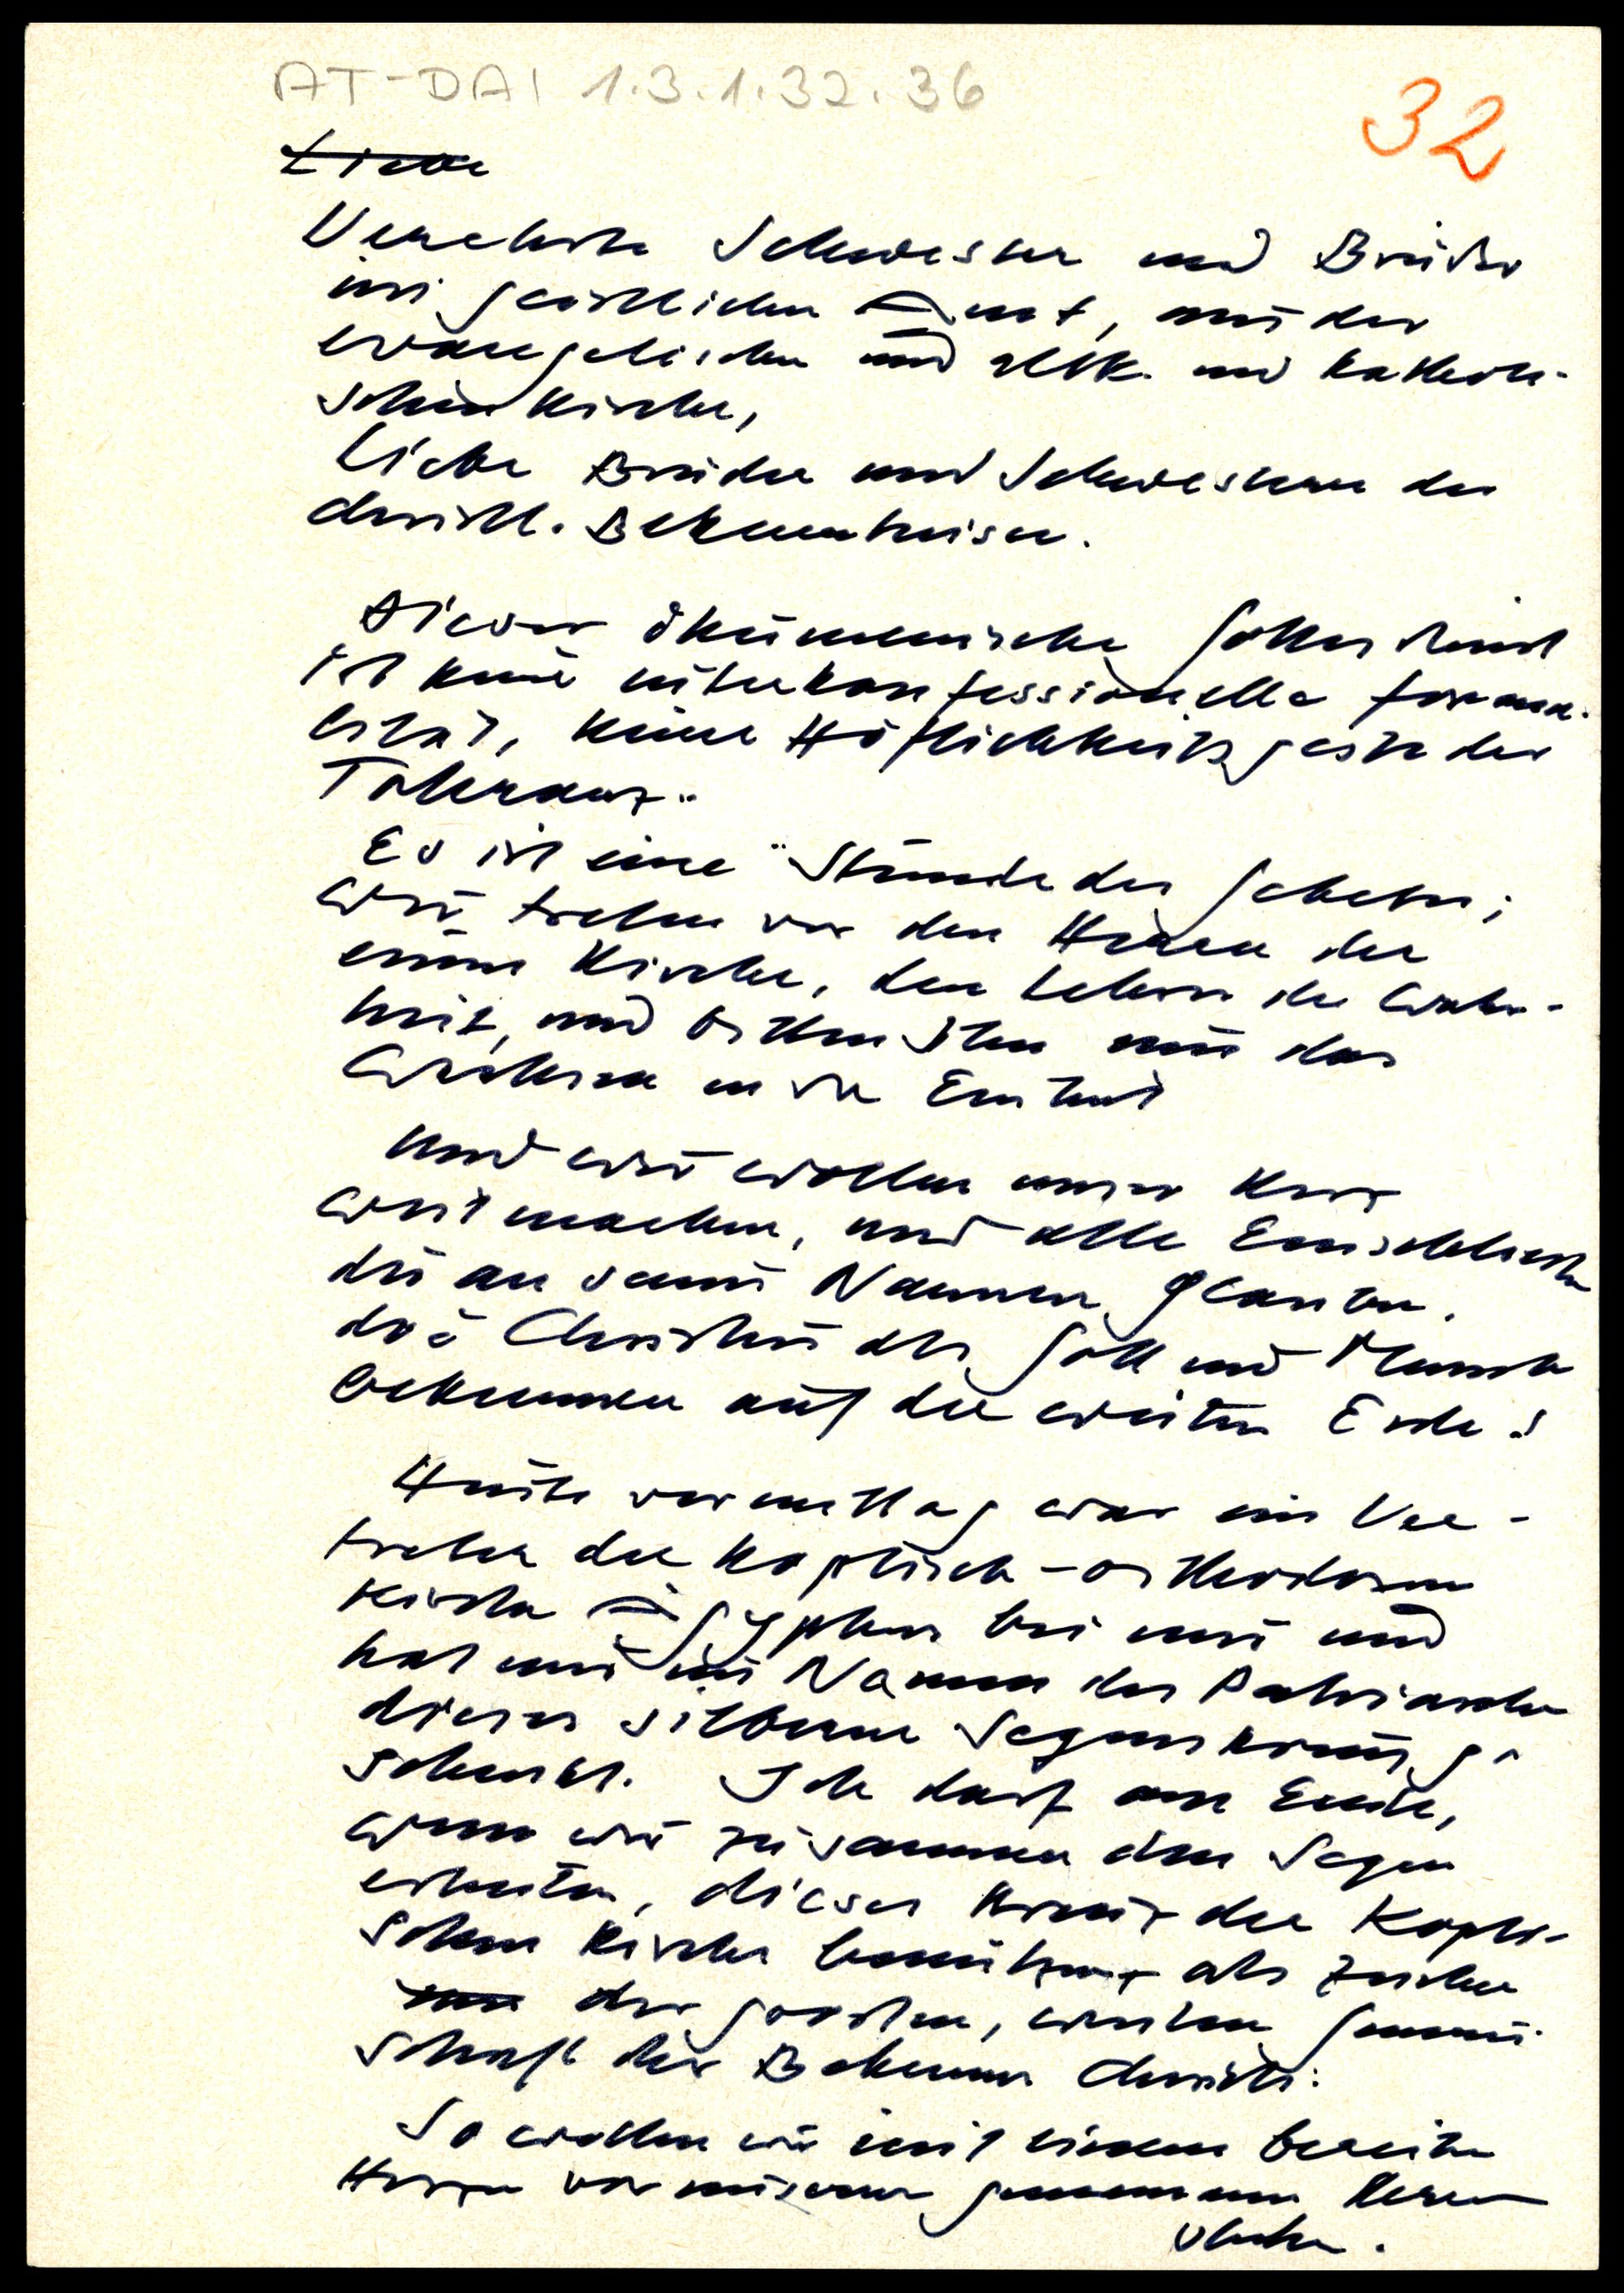 AT-DAI 1.3.1.32.36
32
Liebe
Verehrte Schwestern und Brüder
im geistlichen Amt, aus der
evangelischen und altk. und katholi-
schen Kirche,
Liebe Brüder und Schwestern der
christl. Bekenntnisse.
Dieser ökumenische Gottesdienst
ist keine interkonfessionelle Forma-
lität, keine Höflichkeitsgeste der
Toleranz.
Es ist eine Stunde des Gebetes;
wir treten vor den Herrn der
einen Kirche, den Lehrer der Wahr-
heit, und bitten Ihn um das
Wachsen in der Einheit
Und wir wollen unser Herz
weit machen, und alle Einschließen
die an seinen Namen glauben.
die Christus als Gott und Mensch
bekennen auf der weiten Erde.
Heute vormittag war ein Ver-
treter der koptisch-orthodoxen
Kirche Ägyptens bei mir und
hat mir im Namen des Patriarchen
dieses silberne Segenskreuz ge
schenkt. Ich darf am Ende,
wenn wir zusammen den Segen
erbeten, dieses Kreuz der Kopti-
schen Kirche benützen als Zeichen
der großen, weiten Gemein
schaft der Bekenner Christi.
So wollen wir mit einem bereiten
Herzen vor unserem gemeinsamen Herrn
stehen.